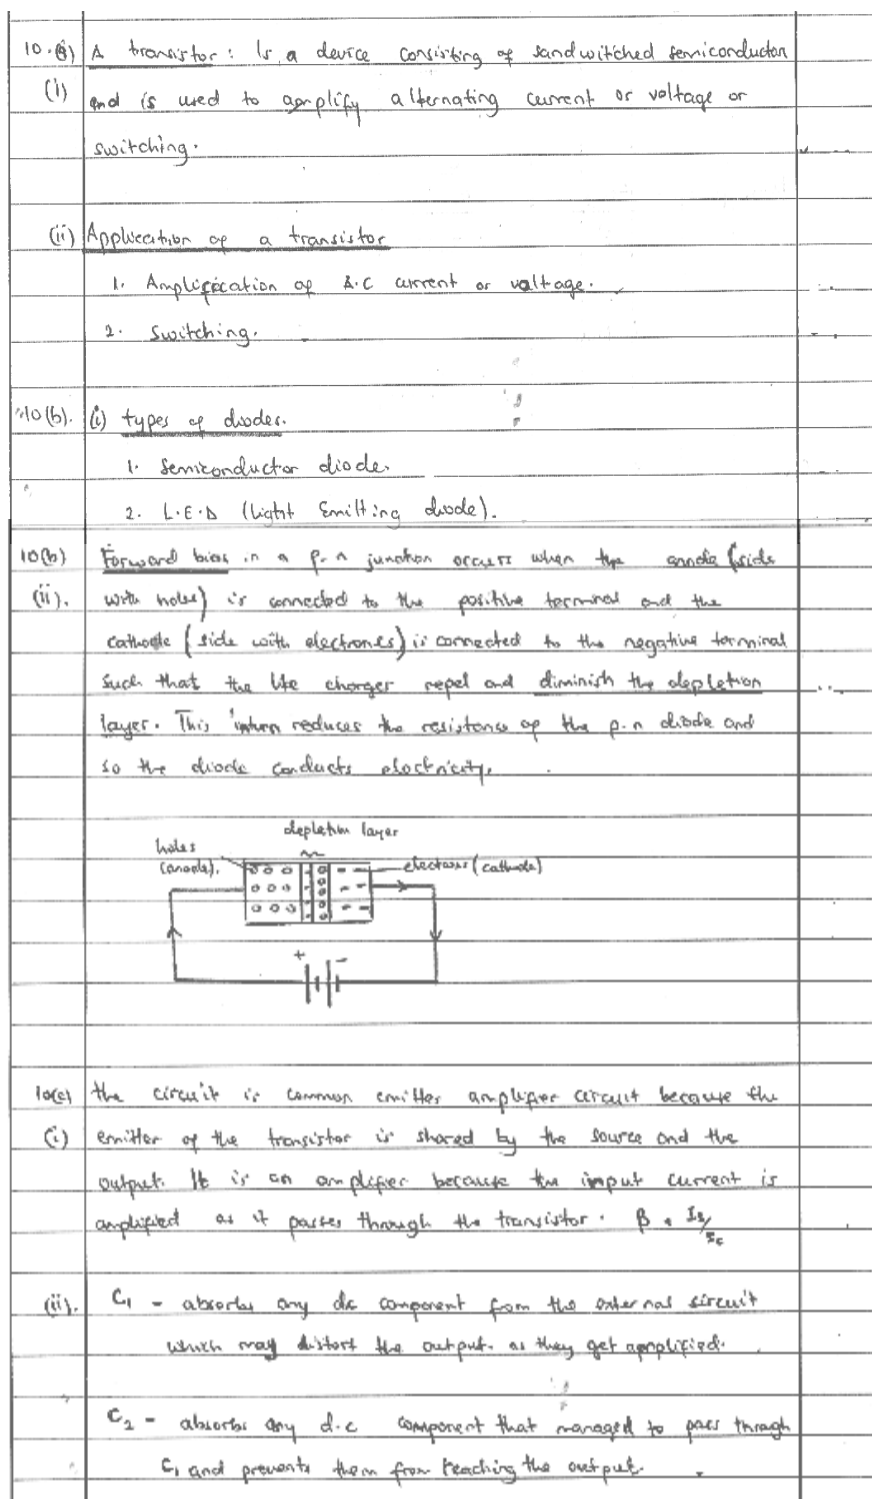 10.(a) A transistor : Is a device consisting of sandwitched semiconductor
(i) and is used to amplify alternating current or voltage or
switching.
(ii) Application of a transistor
1. Amplification of A.C current or voltage.
2. Switching.
10(b). (i) types of diodes.
1. Semiconductor diode.
2. L.E.D (Light Emitting diode).
10(b) Forward bias in a p-n junction occurs when the anode (side
(ii). with holes) is connected to the positive terminal and the
cathode (side with electrones) is connected to the negative terminal
such that the like charges repel and diminish the depletion
layer. This inturn reduces the resistance of the p-n diode and
so the diode conducts electricity.
depletion layer
holes
(anode).
electrons (cathode)
+ -
10(c) the circuit is common emitter amplifier circuit because the
(i) emitter of the transistor is shared by the source and the
output. It is an amplifier because the input current is
amplified as it passes through the transistor. β =
(ii). C1 - absorbs any d.c component from the external circuit
which may distort the output. as they get amplified.
C2 - absorbs any d.c component that managed to pass through
C1 and prevents them from reaching the output.